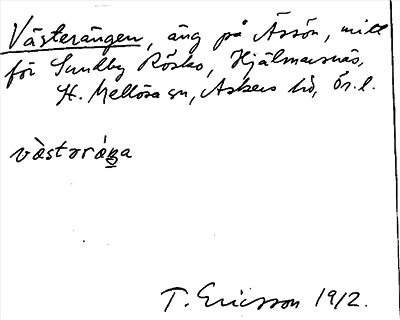 Västerängen, äng på Ässön, mitt
för Sundby Rösko, Hjälmarsnäs,
St. Mellösa sn, Askers hd, Ör. l.
vàstəráŋa
T. Ericsson 1912.